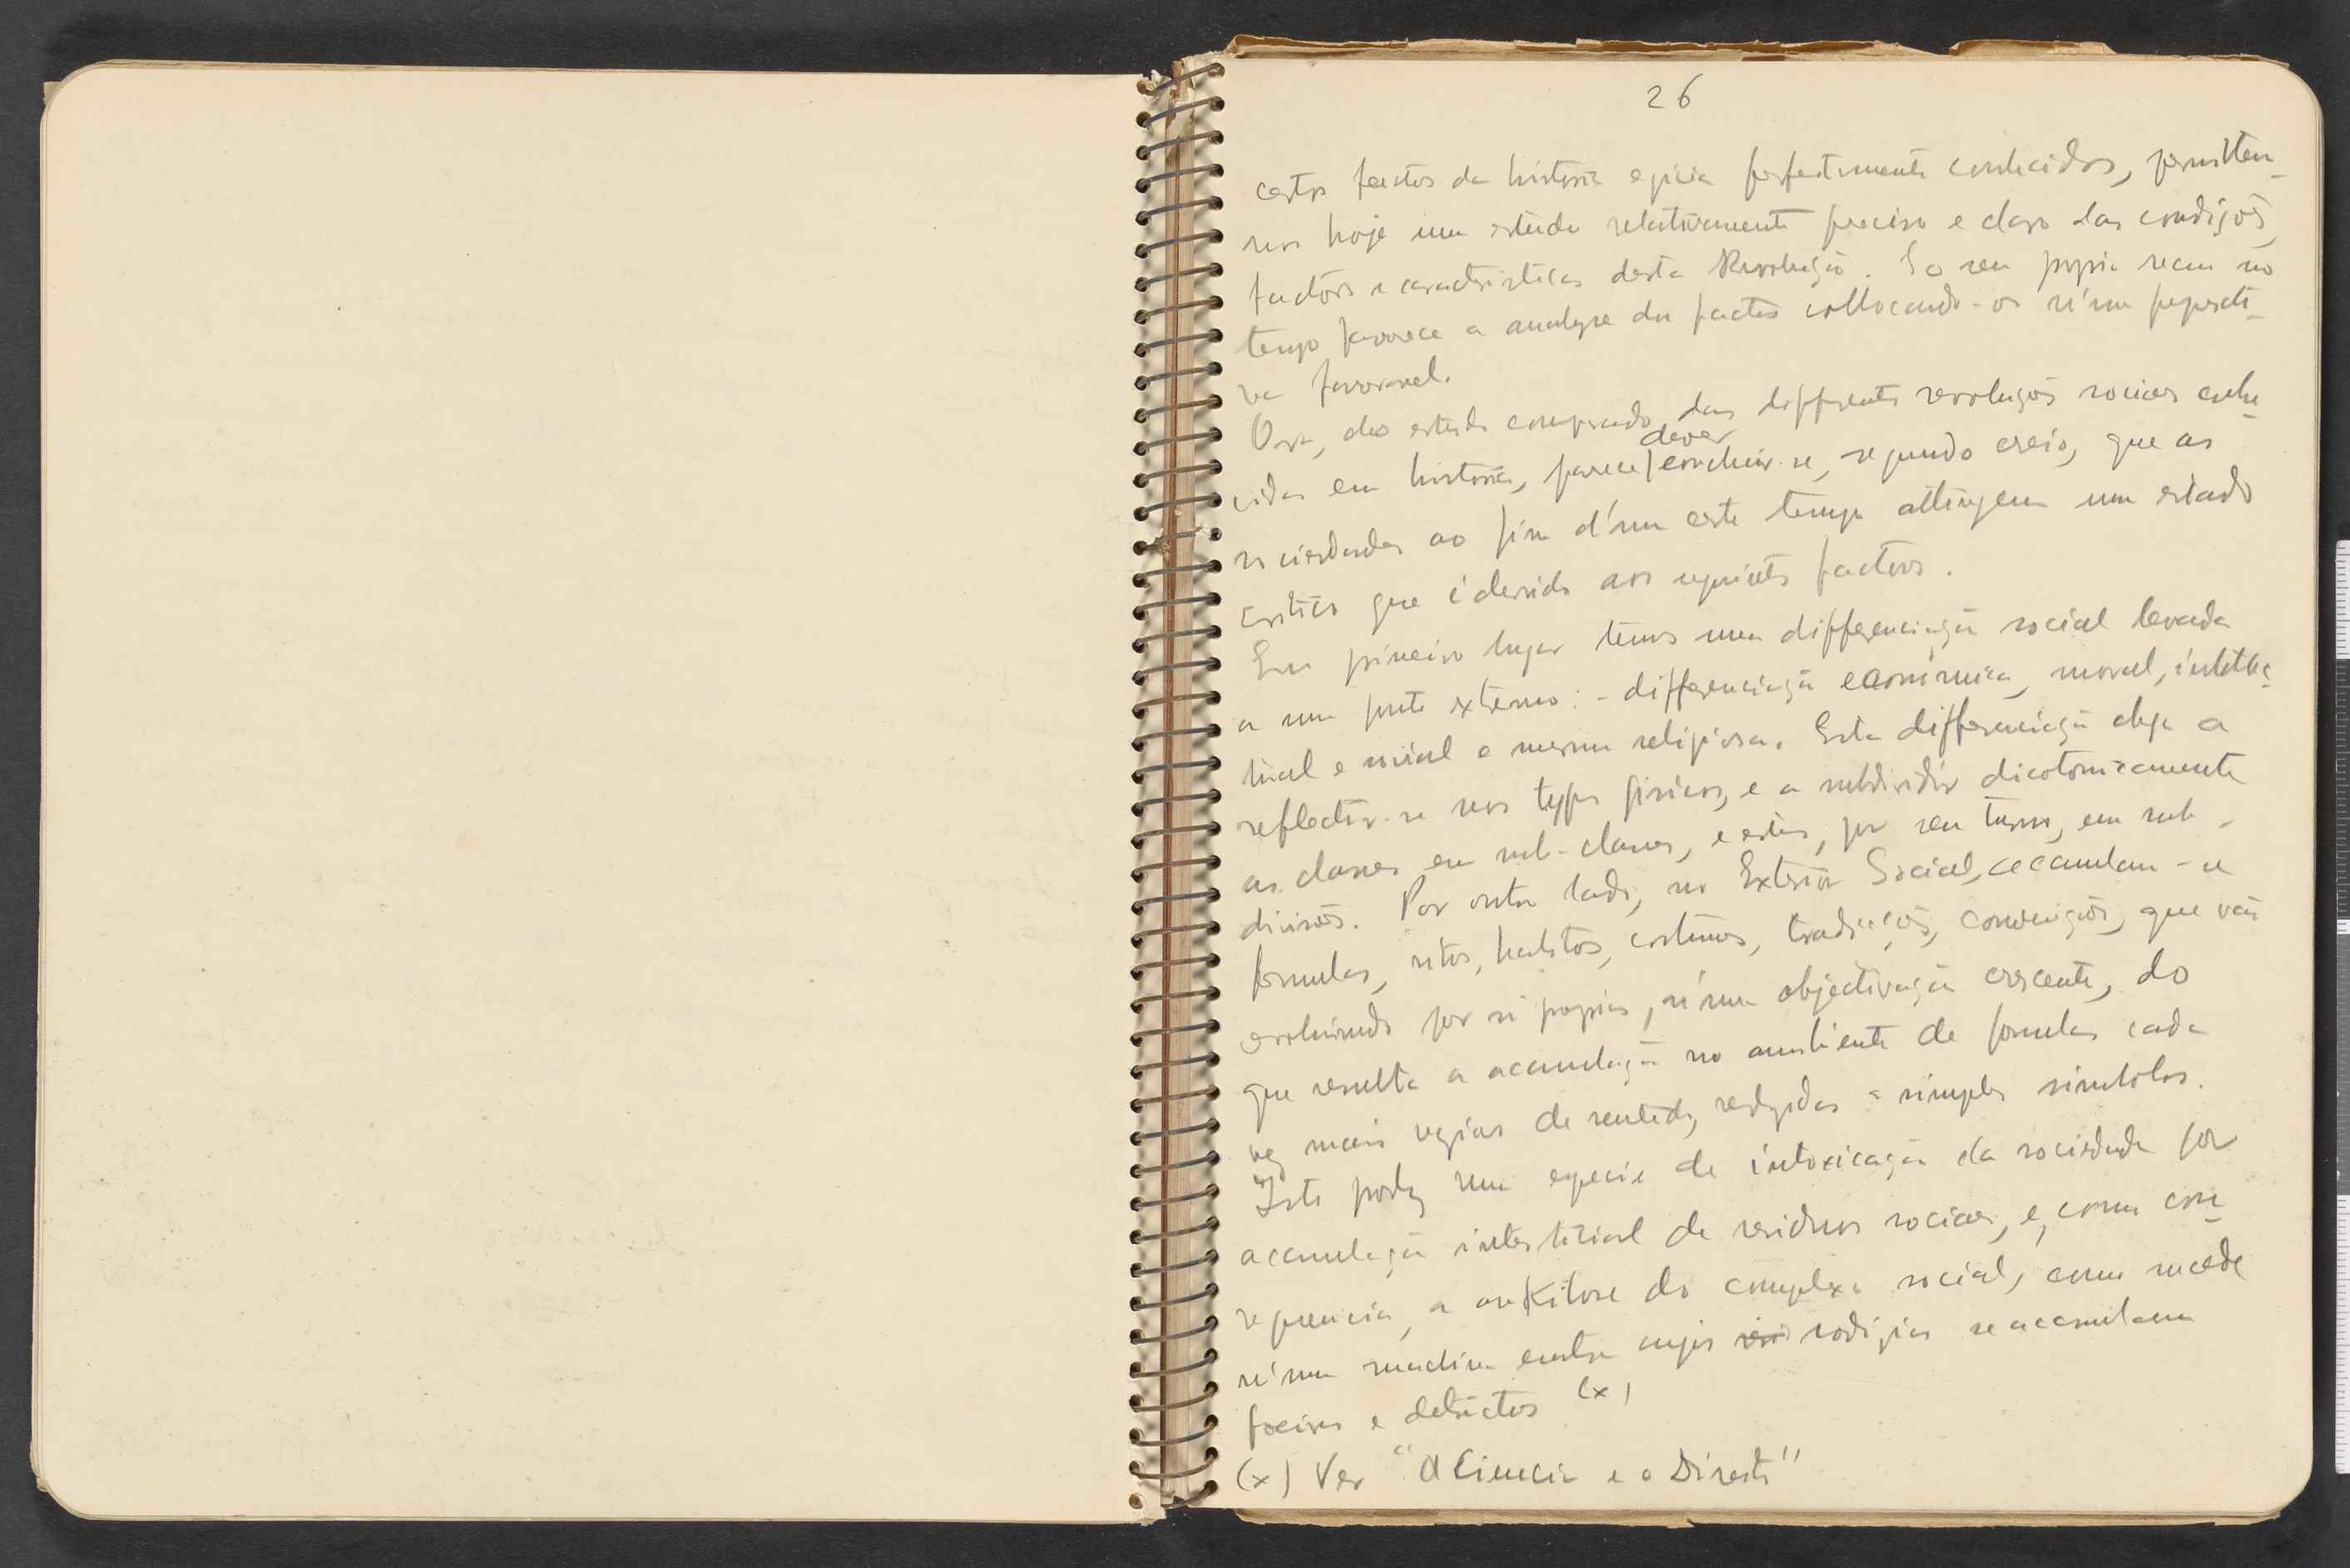 26
certos factos da historia egicia perfeitamente conhecidos, permittem-
nos hoje um estudo relativamente preciso e claro das condições,
factores e caracteristicas desta Revolução. E o seu proprio recuo no
tempo favorece a analyse dos factos collocando-os n'uma perspecti-
va favoravel.
Ora, do estudo comparado das differentes revoluções sociaes conhe-
dever
cidas em historia, parece concluir-se, segundo creio, que as
sociedades ao fim d'um certo tempo attingem um estado
critico que é devido aos seguintes factores.
Em primeiro lugar temos uma differenciação social levada
a um ponto extremo: - differenciação económica, moral, intellec-
tual e social e mesmo religiosa. Esta differenciação chega a
reflectir-se nos typos fisicos, e a subdividir dicotomicamente
as classes em sub-classes, e estas, por seu turno, em sub-
divisões. Por outro lado, no Exterior Social, accumulam-se
formulas, ritos, habitos, costumes, tradicções, convenções, que vão
evoluindo por si proprios, n'uma objectivação crescente, do
que resulta a acumulação no ambiente de formulas cada
vez mais vazias de sentido, reduzidas a simples simbolos.
Isto produz uma especie de intoxicação da sociedade por
acumulação intersticial de residuos sociaes, e, como con-
sequencia, a ankilose do complexo social, como succede
n'uma machina entre cujos rodizios se acumulam
poeiras e detrictos (x)
(x) Ver "A Ciencia e o Direito"